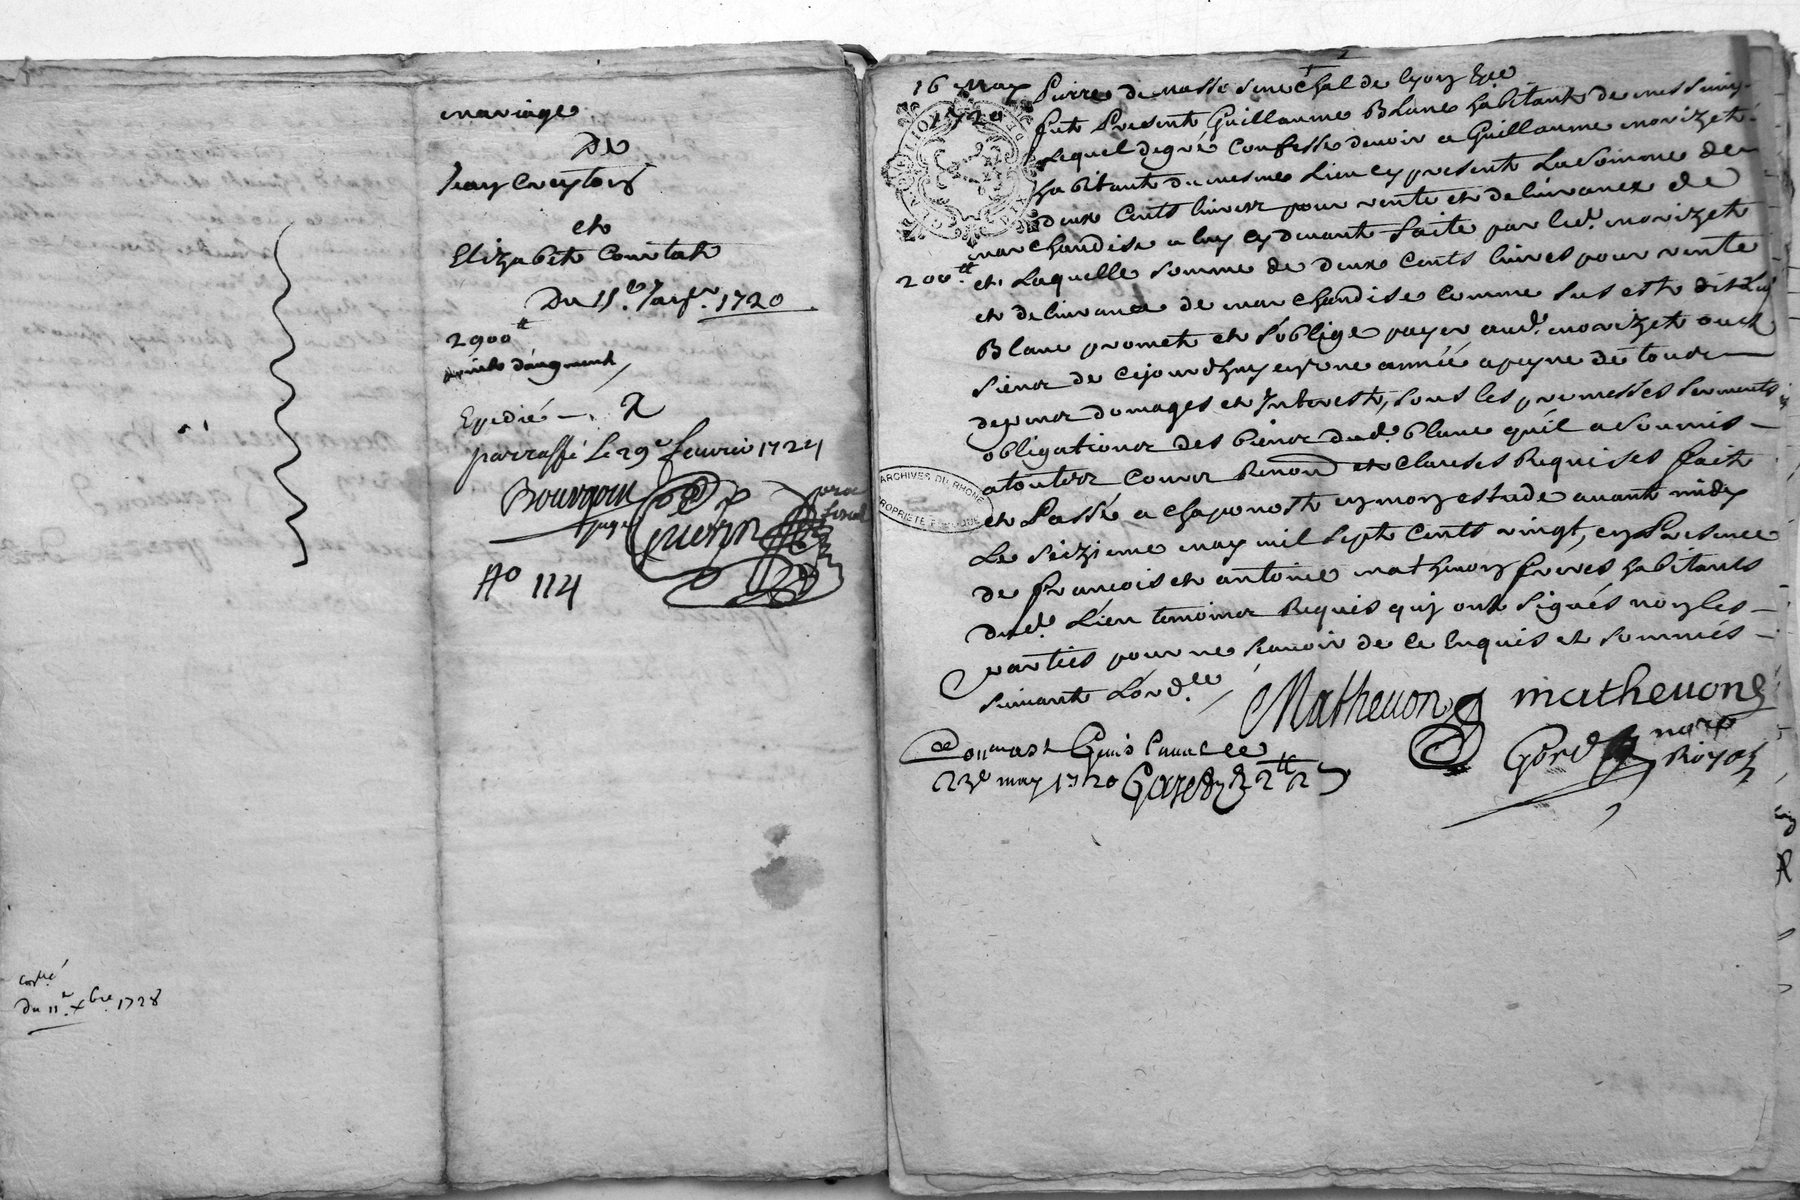 mariage
De
Jean Creyton
et
Elizabeth Courtat
Du 15.e Janvr. 1720
2900tt
d'augment
Expedié
parraffé Le 29e feuvrier 1724
Bourgoin
juge
Guerin
fiscal
No 114
du 11.e Xbre. 1728
16 May
1720
Pierre de masso senechal de lyon
fut Present Guillaume Blanc habitant de messimy
Lequel de gré confesse devoir a Guillaume morizet
habitant du mesme Lieu cy present La somme de
deux Cents livres pour vente et delivrance de
marchandise a luy cy devant faite par led. morizet
200tt. et Laquelle somme de deux Cents livres pour vente
et delivrance de marchandise comme sus est dit Led
Blanc promet et s'oblige payer aud. morizet ou ch
siens de cejourdhuy en une année a peyne de tous
depens domages et Interests, sous les promesses serments
obligations des biens dud. blanc qu'il a soumis
a toutes cours Renon et clauses Requises fait
et Passé a chaponost en mon estude avant midy
Le seizieme may mil sept cents vingt, en Presence
de francois et antoine mathevon freres habitants
dud. Lieu temoins Requis qui ont signés non les
parties pour ne scavoir de ce enquis et sommés
suivant L'ord.ce
Mathevon mathevon
nore
Royal
23e may 1720
ARCHIVES DU RHONE
PROPRIETE PUBLIQUE